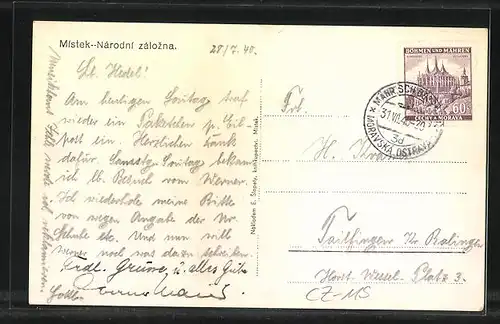 Místek--Národní záložna.
28/7. 40.
Lb. Hedel!
Am heutigen Sontag traf
wieder ein Paketchen p. Eil-
post ein Herzlichen Dank
dafür. Samstg-Sontag bekam
ich lb. Besuch von Werner.
Ich wiederhole meine Bitte
von wegen Angabe der Nr.
Schuhe etc. Und nun will
noch was dazu schreiben.
Hrdl. Grüsse, u. alles Gute
Nakladem E. Šlapety, knihkupectví, Místek.
BÖHMEN UND MÄHREN
60
ČECHY A MORAVA
MÄHR.
31.VII.40
3d
MORAVSKÁ OSTRAVA
Frl.
H.
Tailfingen Kr. Balingen
Horst Wessel-Platz 3.
CZ-MS